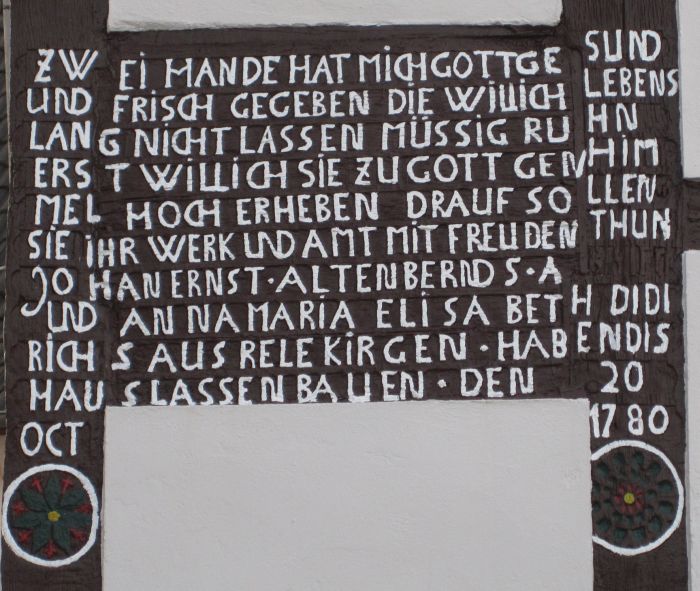 ZW EI HANDE HAT MICH GOTT GE SUND
UND FRISCH GEGEBEN DIE WILLICH LEBENS
LANG NICHT LASSEN MÜSSIG RU HN
ERS T WILLICH SIE ZU GOTT GEN HIM
MEL HOCH ERHEBEN DRAUF SO LLEN
SIE IHR WERK UND AMT MIT FREUDEN THUN
JOHAN ERNST · ALTENBERND S · A
UND ANNA MARIA ELISABETH DIDI
RICHS AUS RELEKIRGEN · HABEN DIS
HAUS LASSEN BAUEN · DEN 20
OCT 1780